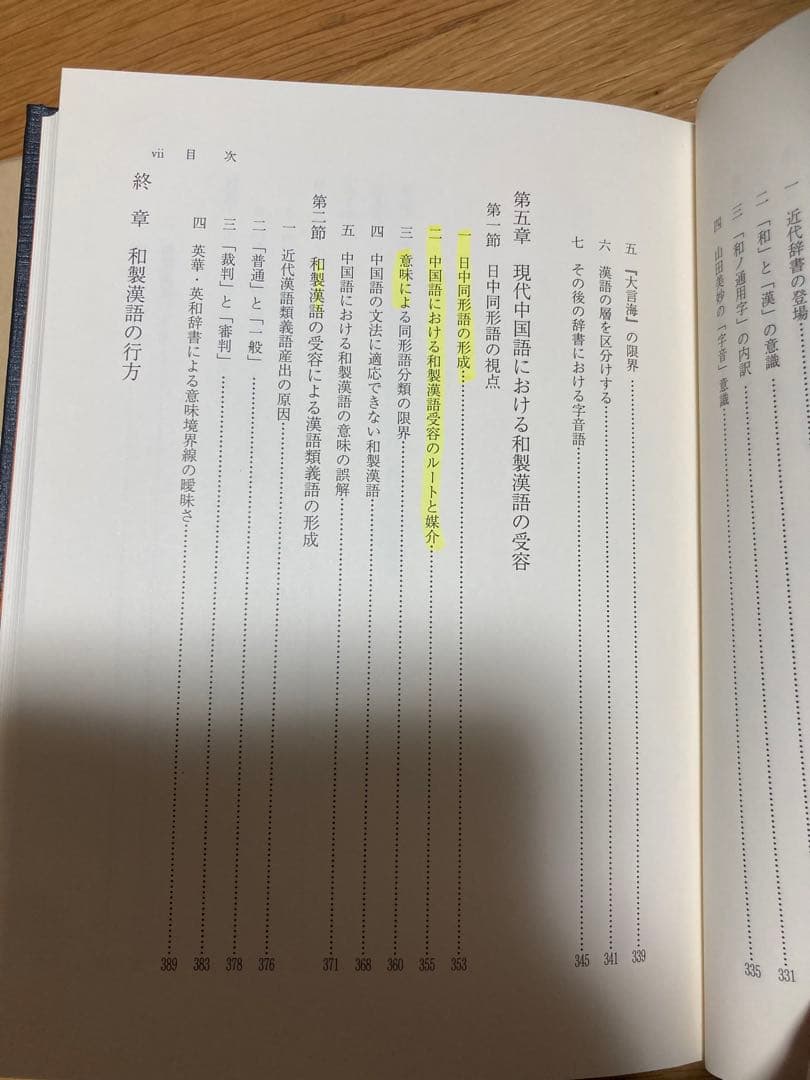 一　近代辞書の登場
二　「和」と「漢」の意識……331
三　「和ノ通用字」の内訳……335
四　山田美妙の「字音」意識
五　『大言海』の限界……339
六　漢語の層を区分けする……341
七　その後の辞書における字音語……345
第五章　現代中国語における和製漢語の受容
第一節　日中同形語の視点
一　日中同形語の形成……353
二　中国語における和製漢語受容のルートと媒介……355
三　意味による同形語分類の限界……360
四　中国語の文法に適応できない和製漢語……368
五　中国語における和製漢語の意味の誤解……371
第二節　和製漢語の受容による漢語類義語の形成
一　近代漢語類義語産出の原因……376
二　「普通」と「一般」……378
三　「裁判」と「審判」……383
四　英華・英和辞書による意味境界線の曖昧さ……389
終　章　和製漢語の行方
vii　目　次